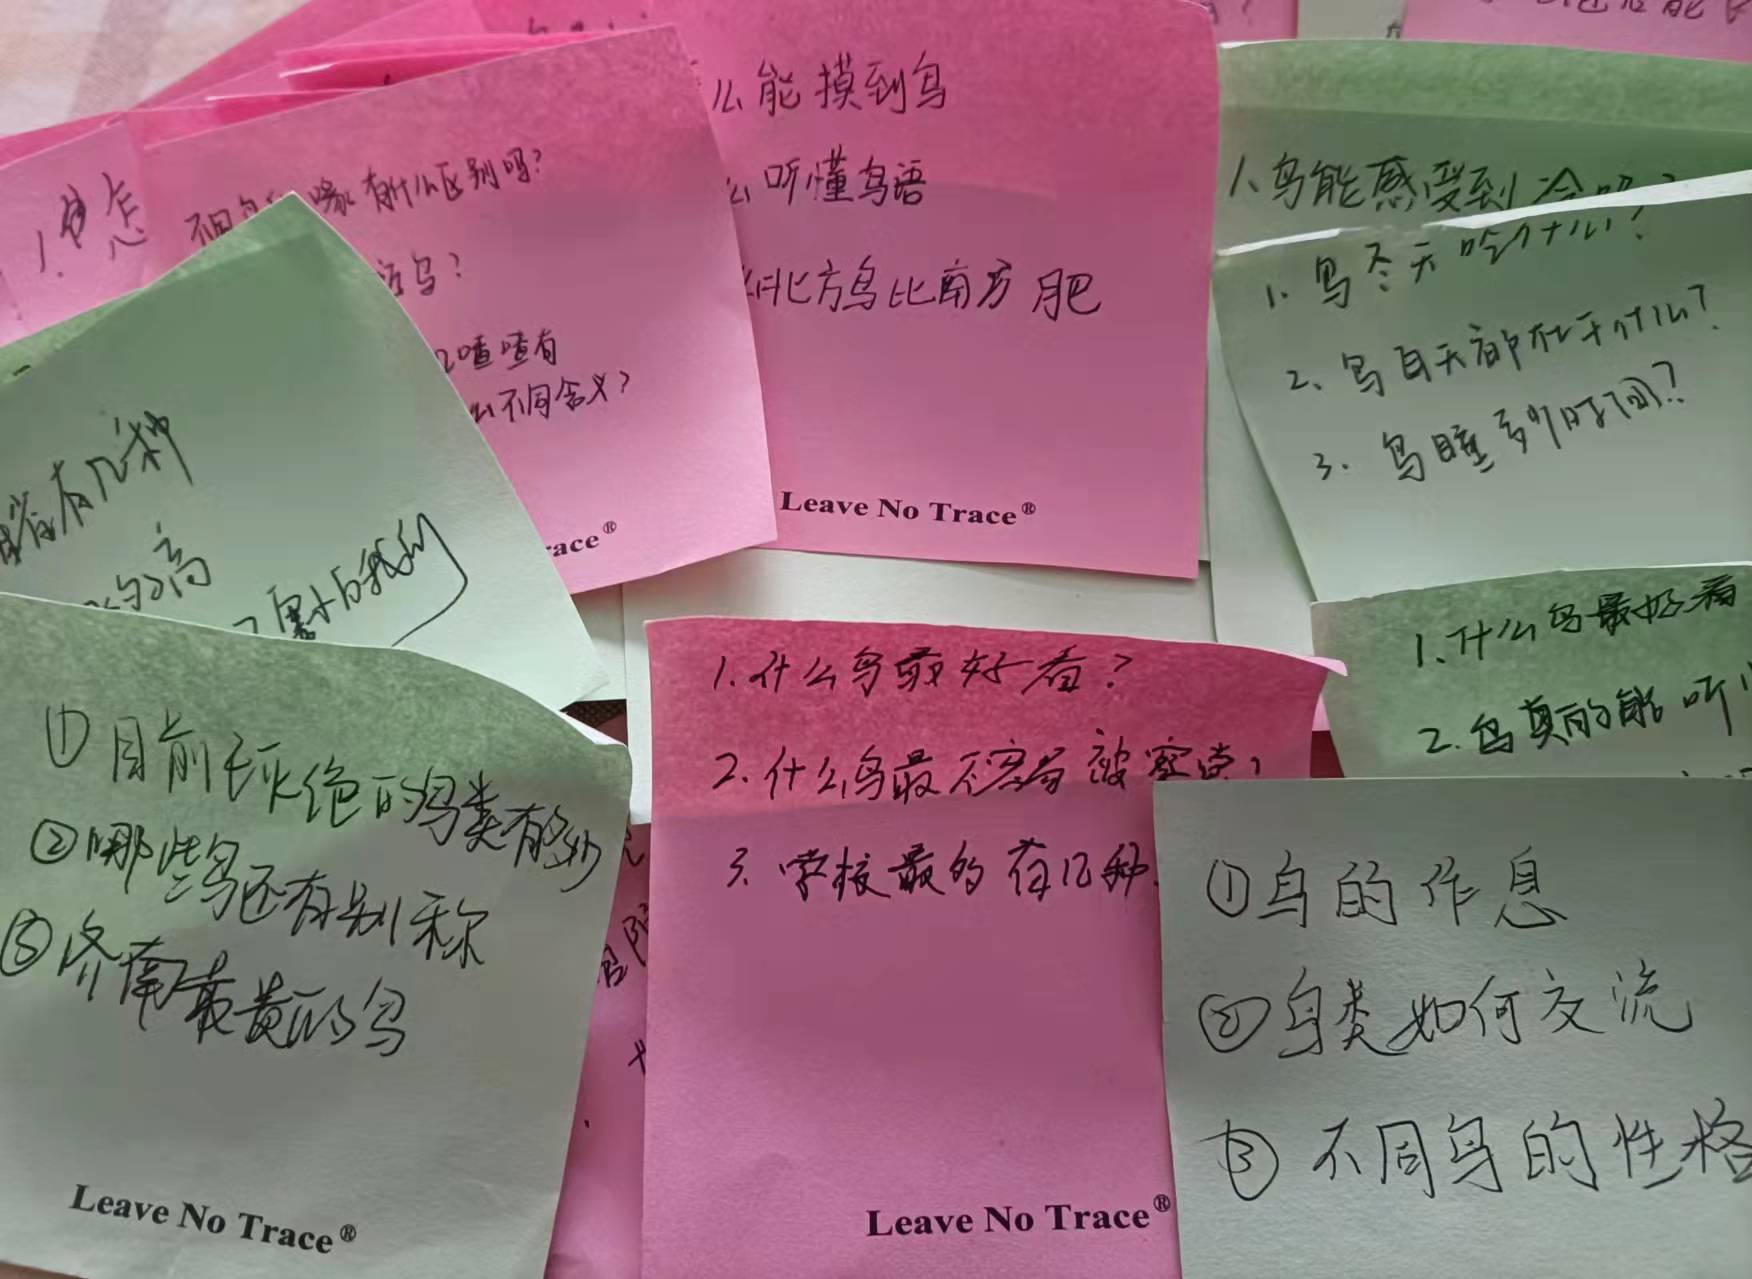 么能摸到鸟
听懂鸟语
北方鸟比南方肥
Leave No Trace®
1.鸟怎
不同鸟 喙有什么区别吗?
鸟?
喳喳有
么不同含义?
race®
1.鸟能感受到冷吗?
1.鸟冬天吃什么?
2、鸟白天都在干什么?
3.鸟睡多少时间?
有几种
高
1.什么鸟最好看
2.鸟真的能听
①目前灭绝的鸟类有多少
②哪些鸟还有别称
③济南最贵的鸟
Leave No Trace®
1.什么鸟最好看?
2.什么鸟最不容易被
3.学校最 有几种
Leave No Trace®
①鸟的作息
②鸟类如何交流
③不同鸟的性格